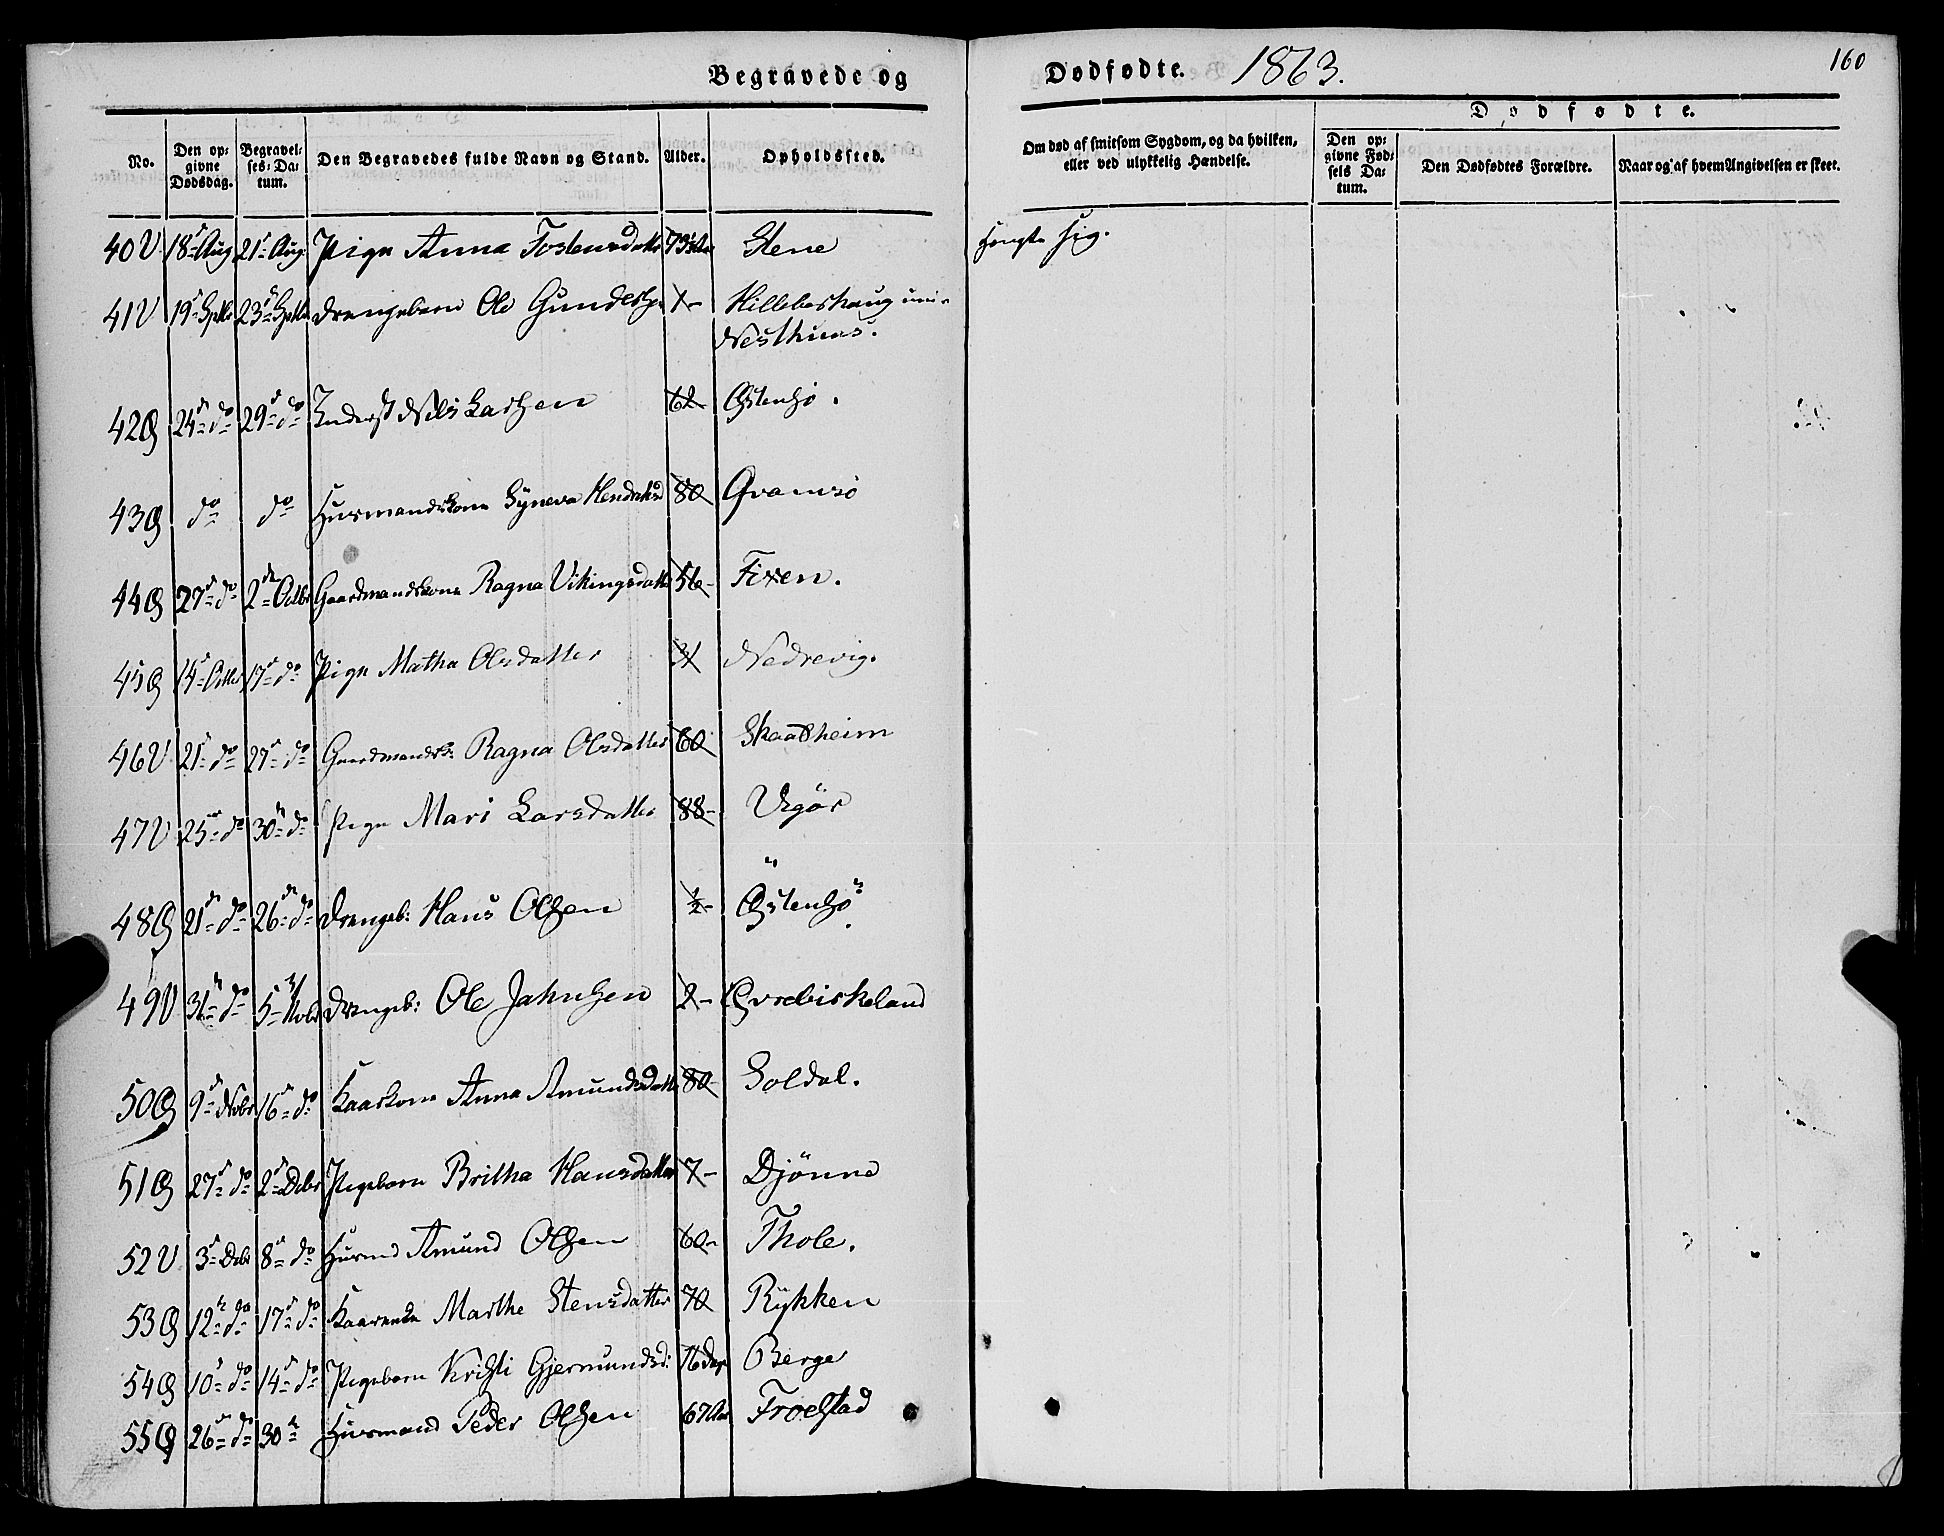 Begravede og
Dødfødte. 1863. 160
No. Den opgivne Dødsdag. Begravelses-Datum. Den Begravedes fulde Navn og Stand. Alder. Opholdssted. Om død af smitsom Sygdom, og da hvilken, eller ved ulykkelig Hændelse.
Dødfødte.
Den opgivne Fødsels Datum. Den Dødfødtes Forældre. Naar og af hvem Angivelsen er skeet.
40 V 18 Aug 21 Aug Pige Anna Tostensdatter Stene Hængte sig.
41 V 19 Septbr 23 Septbr Drengebarn Ole 1 - Hilleboshaug
Nesthuus.
42 Ø 24 do 29 do Inderst Nils Larsen 62 Østensø.
43 Ø do do Huusmandskone Syneva 80 Qvamsø
44 Ø 27 do 2 Octbr Gaardmandskone Ragna Vikingsdatter 56 - Fixen.
45 Ø 14 Octbr 17 do Pige Matha Olsdatter Nedrevig.
46 V 21 do 27 do Gaardmandsk: Ragna Olsdatter 60 Skaatheim
47 V 25 do 30 do Pige Mari Larsdatter 88 -
48 Ø 21 do 26 do Drengeb: Hans Olsen 1/2 - Østensø.
49 V 31 do 5 Novbr Drengeb: Ole Jahnsen 2 - Øvrebirkeland
50 Ø 9 Novbr 16 do Kaarkone Anna Amundsdatter 80 - Soldal.
51 Ø 27 do 2 Debr Pigebarn Britha Hansdatter 7 - Djönne
52 V 3 Debr 8 do Huusmd Amund Olsen 60 - Thole.
53 Ø 12 do 17 do Marthe Stensdatter 70 Rykken
54 Ø 10 do 14 do Pigebarn Kristi Gjermundsd: 16 Dage Berge
55 Ø 26 do 30 Huusmand Peder Olsen 67 Aar Froelstad